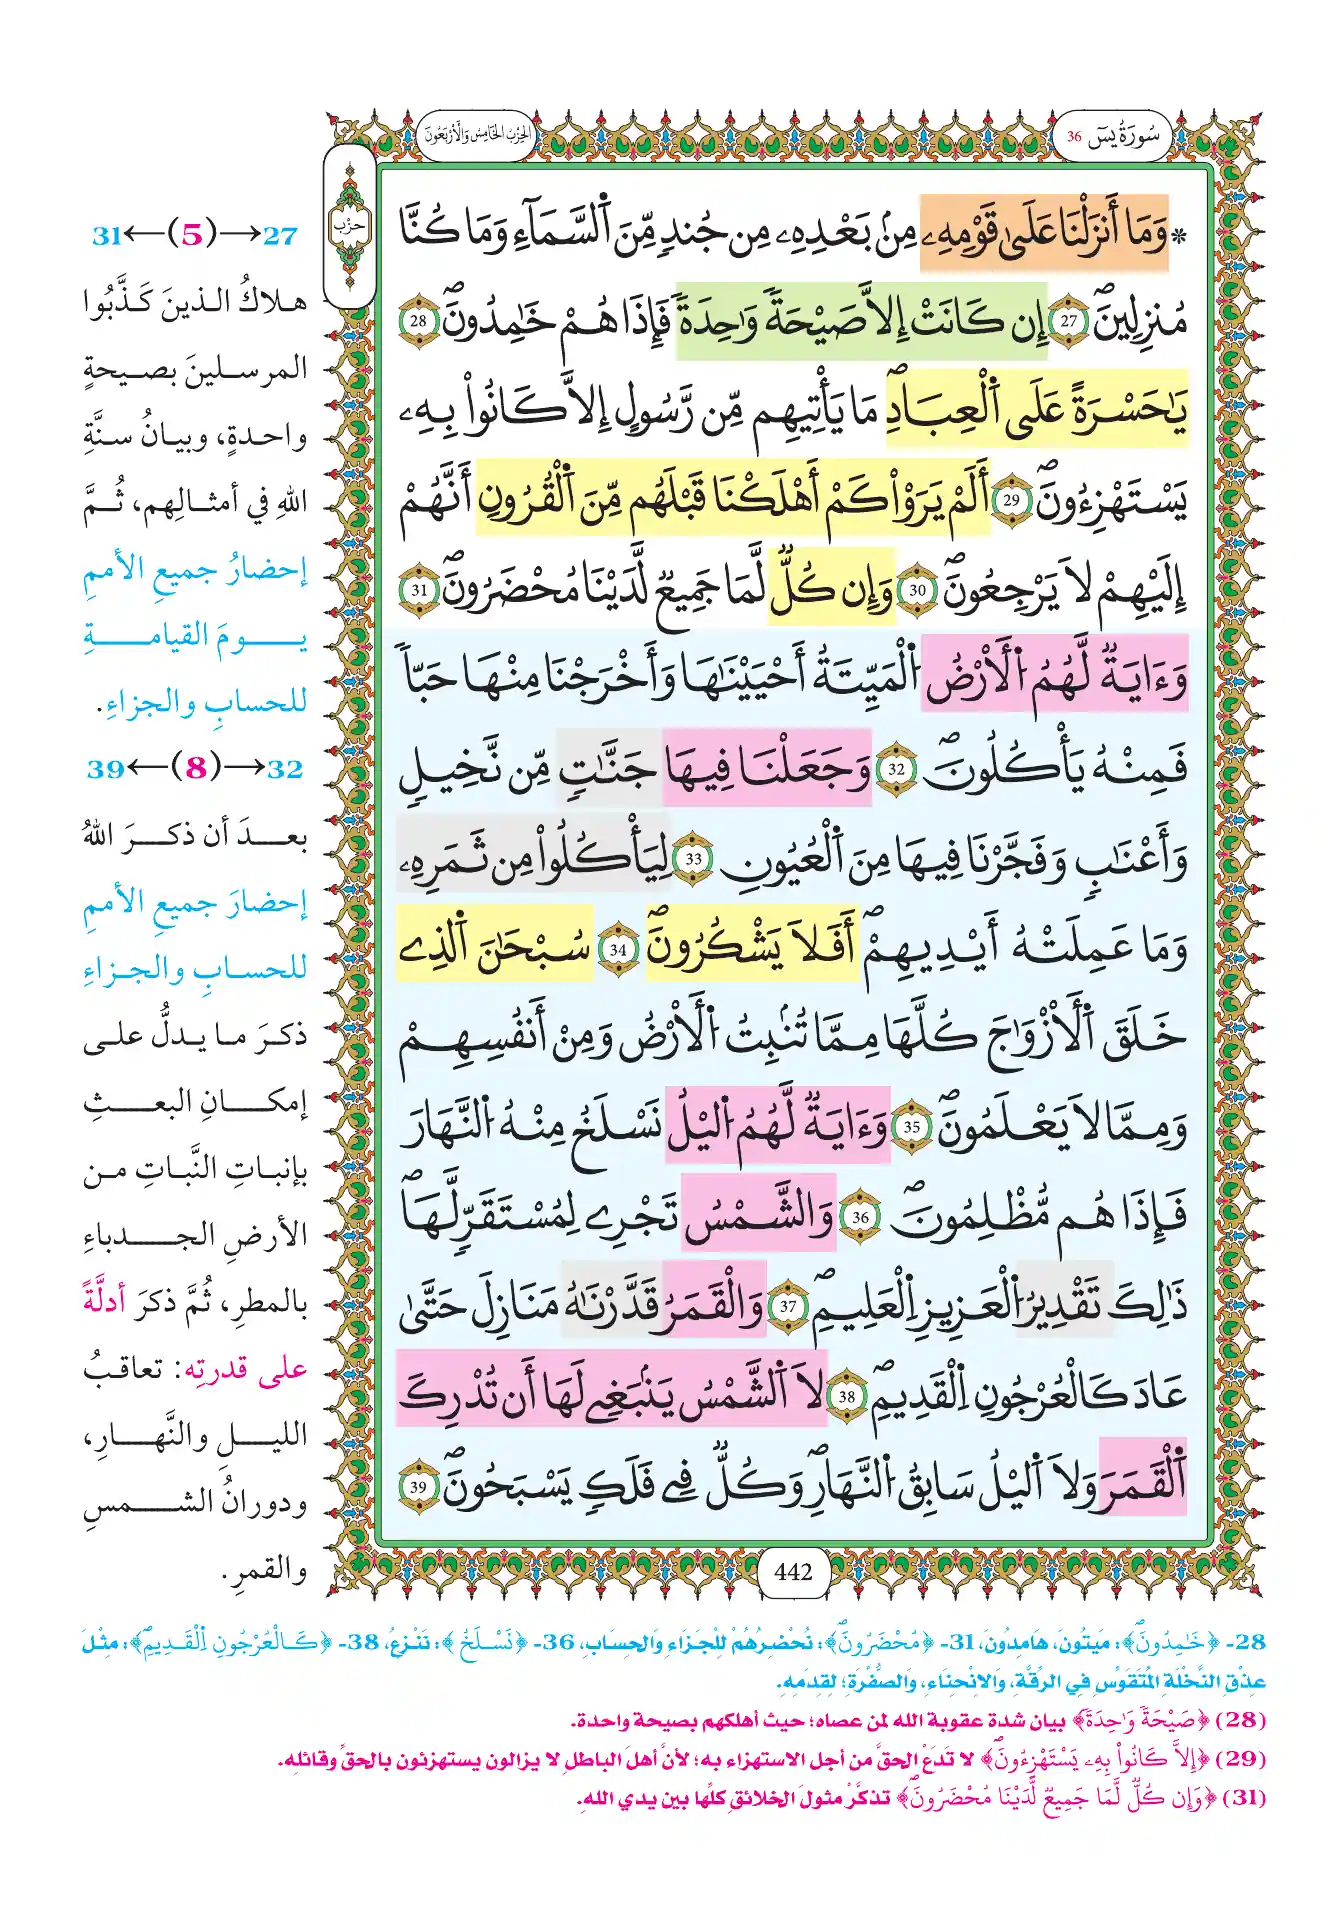 سُورَةُ يسٓ 36
الحِزْبُ الخَامِسُ وَالأَرْبَعُونَ
حِزْب
۞ وَمَا أَنزَلْنَا عَلَىٰ قَوْمِهِۦ مِنۢ بَعْدِهِۦ مِن جُندٖ مِّنَ اَ۬لسَّمَآءِ وَمَا كُنَّا
مُنزِلِينَۖ 27 إِن كَانَتْ إِلَّا صَيْحَةٗ وَٰحِدَةٗ فَإِذَا هُمْ خَٰمِدُونَۖ 28
يَٰحَسْرَةً عَلَى اَ۬لْعِبَادِۖ مَا يَأْتِيهِم مِّن رَّسُولٍ اِلَّا كَانُواْ بِهِۦ
يَسْتَهْزِءُونَۖ 29 أَلَمْ يَرَوْاْ كَمْ أَهْلَكْنَا قَبْلَهُم مِّنَ اَ۬لْقُرُونِ أَنَّهُمْ
إِلَيْهِمْ لَا يَرْجِعُونَۖ 30 وَإِن كُلّٞ لَّمَا جَمِيعٞ لَّدَيْنَا مُحْضَرُونَۖ 31
وَءَايَةٞ لَّهُمُ اُ۬لْأَرْضُ اُ۬لْمَيِّتَةُ أَحْيَيْنَٰهَا وَأَخْرَجْنَا مِنْهَا حَبّاٗ
فَمِنْهُ يَأْكُلُونَۖ 32 وَجَعَلْنَا فِيهَا جَنَّٰتٖ مِّن نَّخِيلٖ
وَأَعْنَٰبٖ وَفَجَّرْنَا فِيهَا مِنَ اَ۬لْعُيُونِ 33 لِيَأْكُلُواْ مِن ثَمَرِهِۦ
وَمَا عَمِلَتْهُ أَيْدِيهِمْۖ أَفَلَا يَشْكُرُونَۖ 34 سُبْحَٰنَ اَ۬لذِے
خَلَقَ اَ۬لْأَزْوَٰجَ كُلَّهَا مِمَّا تُنۢبِتُ اُ۬لْأَرْضُ وَمِنْ أَنفُسِهِمْ
وَمِمَّا لَا يَعْلَمُونَۖ 35 وَءَايَةٞ لَّهُمُ اُ۬ليْلُ نَسْلَخُ مِنْهُ اُ۬لنَّهَارَ
فَإِذَا هُم مُّظْلِمُونَۖ 36 وَالشَّمْسُ تَجْرِے لِمُسْتَقَرّٖ لَّهَاۖ
ذَٰلِكَ تَقْدِيرُ اُ۬لْعَزِيزِ اِ۬لْعَلِيمِۖ 37 وَالْقَمَرُ قَدَّرْنَٰهُ مَنَازِلَ حَتَّىٰ
عَادَ كَالْعُرْجُونِ اِ۬لْقَدِيمِۖ 38 لَا اَ۬لشَّمْسُ يَنۢبَغِے لَهَا أَن تُدْرِكَ
اَ۬لْقَمَرَ وَلَا اَ۬ليْلُ سَابِقُ اُ۬لنَّهَارِۖ وَكُلّٞ فِے فَلَكٖ يَسْبَحُونَۖ 39
442
27→(5)←31
هلاكُ الذينَ كَذَّبُوا
المرسلينَ بصيحةٍ
واحدةٍ، وبيانُ سنَّةِ
اللهِ في أمثالِهم، ثُمَّ
إحضارُ جميعِ الأممِ
يومَ القيامةِ
للحسابِ والجزاءِ.
32→(8)←39
بعدَ أن ذكرَ اللهُ
إحضارَ جميعِ الأممِ
للحسابِ والجزاءِ
ذكرَ ما يدلُّ على
إمكانِ البعثِ
بإنباتِ النَّباتِ من
الأرضِ الجدباءِ
بالمطرِ، ثُمَّ ذكرَ أدلَّةً
على قدرتِه: تعاقبُ
الليلِ والنَّهارِ،
ودورانُ الشمسِ
والقمرِ.
28- ﴿خَٰمِدُونَۖ﴾: مَيِّتُونَ، هَامِدُونَ، 31- ﴿مُحْضَرُونَۖ﴾: نُحْضِرُهُمْ لِلْجَزَاءِ وَالحِسَابِ، 36- ﴿نَسْلَخُ﴾: نَنْزِعُ، 38- ﴿كَالْعُرْجُونِ اِ۬لْقَدِيمِۖ﴾: مِثْلَ
عِذْقِ النَّخْلَةِ المُتَقَوِّسِ فِي الرِّقَّةِ، وَالانْحِنَاءِ، وَالصُّفْرَةِ؛ لِقِدَمِهِ.
(28) ﴿صَيْحَةٗ وَٰحِدَةٗ﴾ بيان شدة عقوبة الله لمن عصاه؛ حيث أهلكهم بصيحة واحدة.
(29) ﴿إِلَّا كَانُواْ بِهِۦ يَسْتَهْزِءُونَۖ﴾ لا تَدَعْ الحقَّ من أجل الاستهزاء به؛ لأنَّ أهلَ الباطلِ لا يزالون يستهزئون بالحقِّ وقائلِه.
(31) ﴿وَإِن كُلّٞ لَّمَا جَمِيعٞ لَّدَيْنَا مُحْضَرُونَۖ﴾ تذكَّرْ مثولَ الخلائقِ كلِّها بين يدي اللهِ.